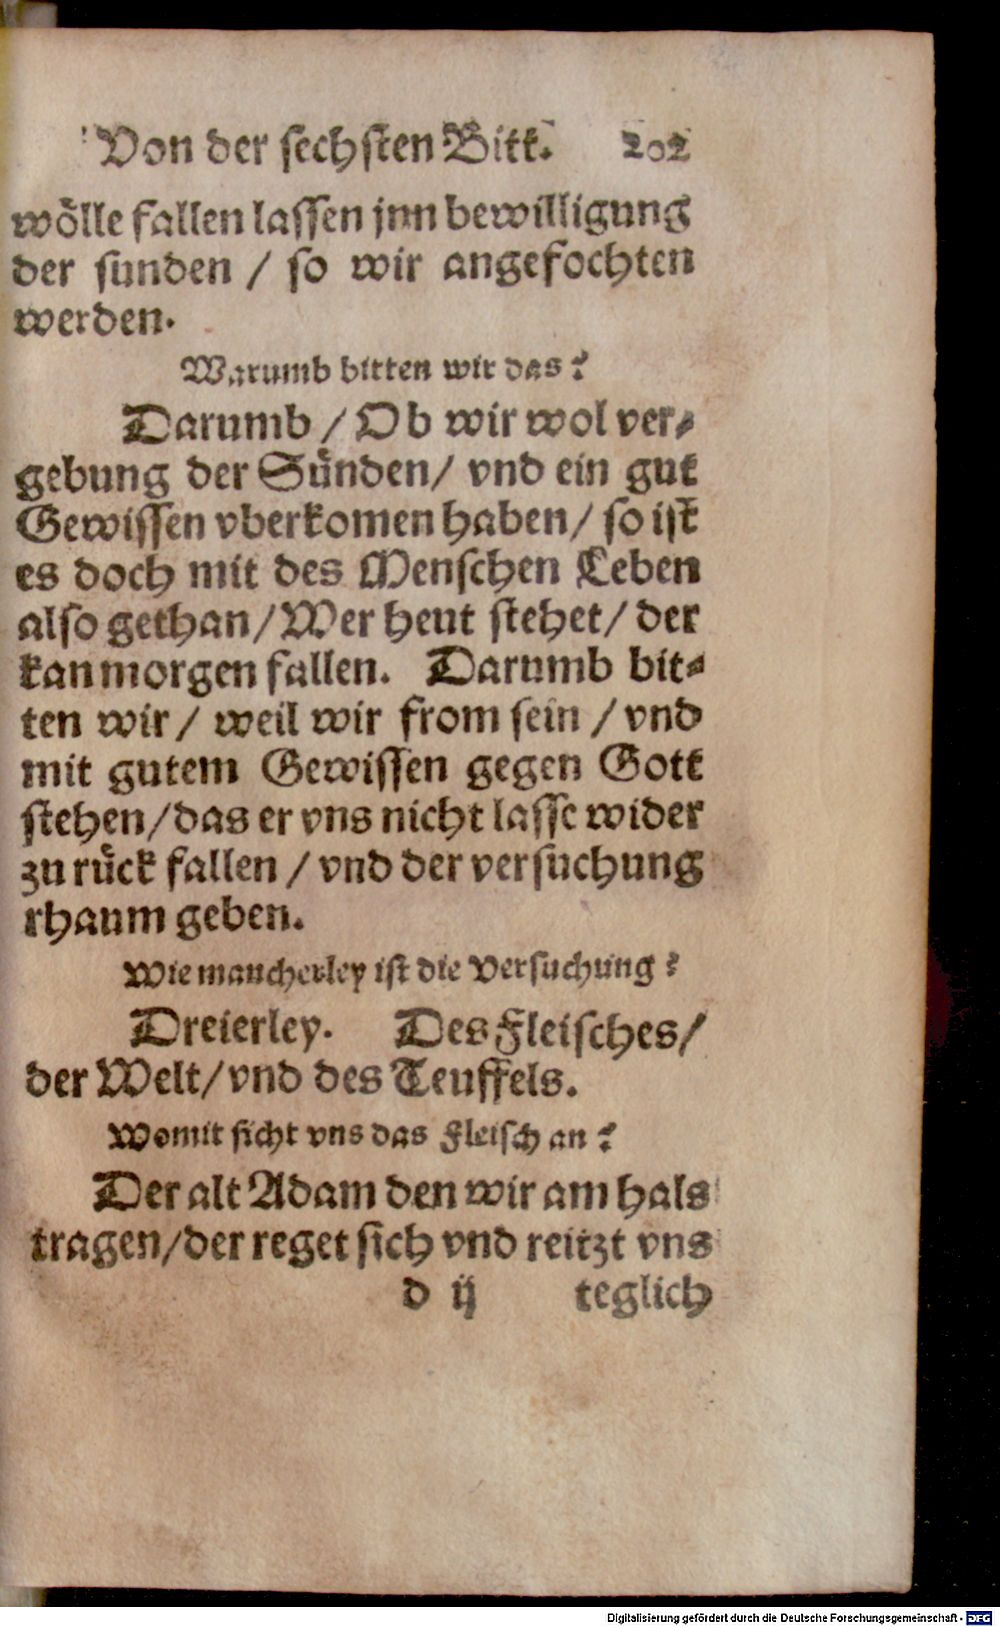 Von der sechsten Bitt. 202
wölle fallen lassen jnn bewilligung
der sunden / so wir angefochten
werden.
Warumb bitten wir das?
Darumb / Ob wir wol ver-
gebung der Sünden / vnd ein gut
Gewissen vberkomen haben / so ist
es doch mit des Menschen Leben
also gethan / Wer heut stehet / der
kan morgen fallen. Darumb bit-
ten wir / weil wir from sein / vnd
mit gutem Gewissen gegen Gott
stehen / das er vns nicht lasse wider
zu rück fallen / vnd der versuchung
rhaum geben.
Wie mancherley ist die Versuchung?
Dreierley. Des Fleisches /
der Welt / vnd des Teuffels.
Womit ficht vns das Fleisch an?
Der alt Adam den wir am hals
tragen / der reget sich vnd reitzt vns
d ij teglich
Digitalisierung gefördert durch die Deutsche Forschungsgemeinschaft - DFG